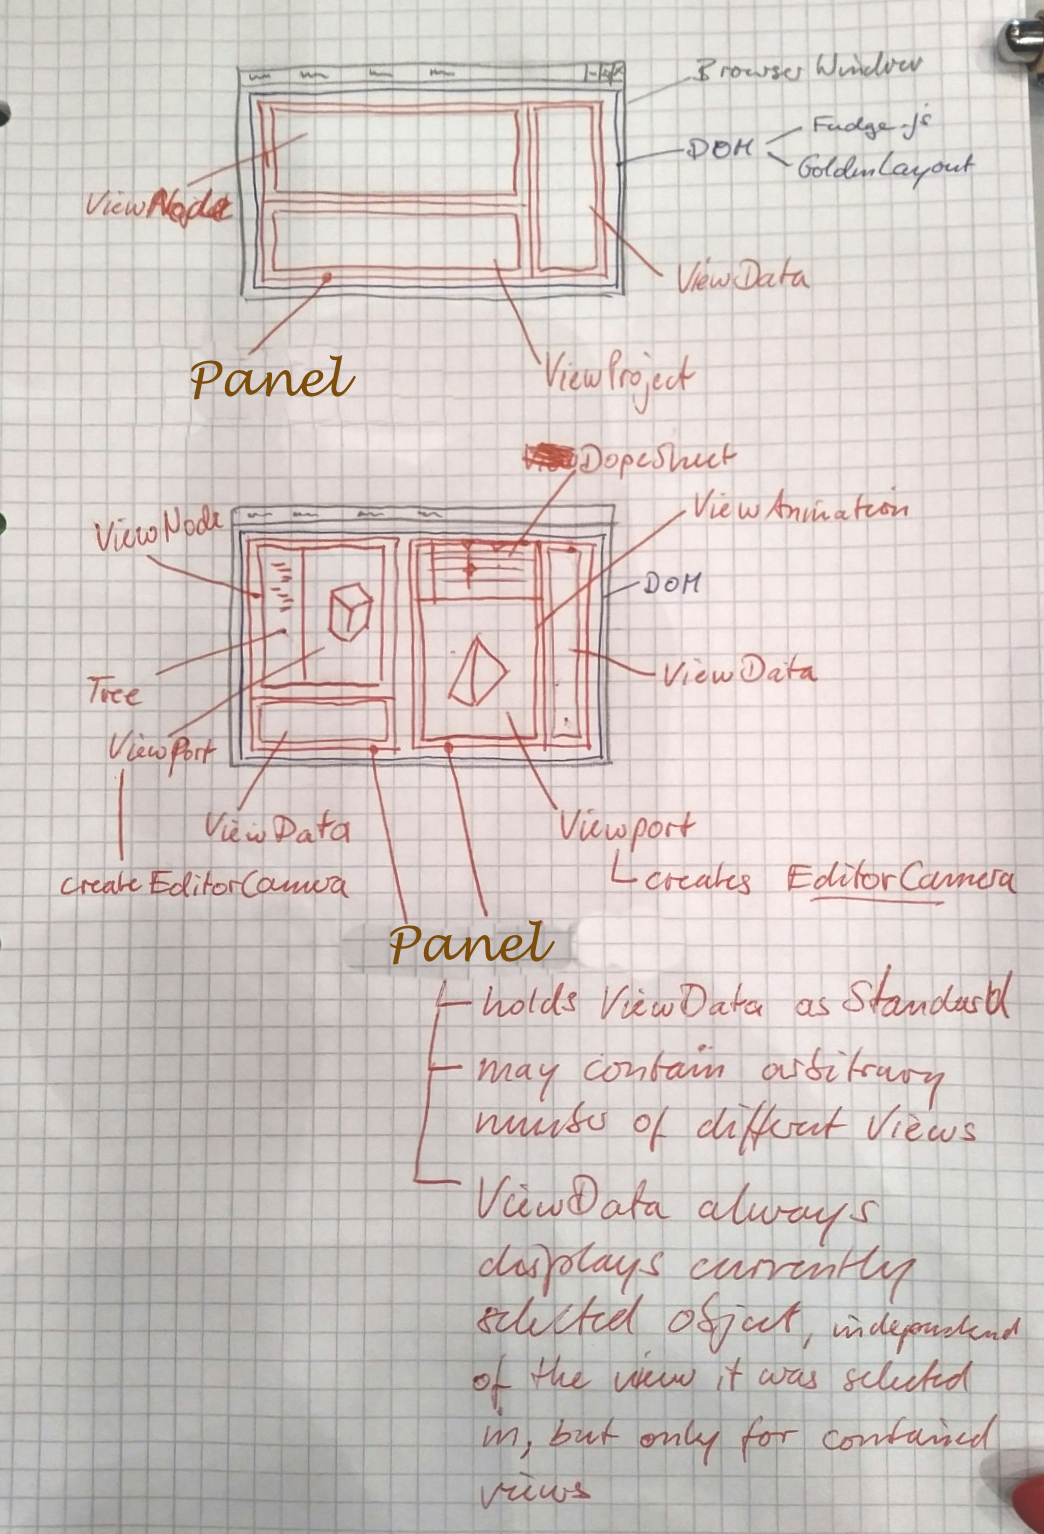 Browser Window
Fudge.js
DOM
GoldenLayout
ViewNode
ViewData
Panel
ViewProject
DopeSheet
ViewAnimation
ViewNode
DOM
ViewData
Tree
ViewPort
ViewData
Viewport
createEditorCamera
creates EditorCamera
Panel
holds ViewData as Standard
may contain arbitrary
number of different Views
ViewData always
displays currently
selected object, independend
of the view it was selected
in, but only for contained
views